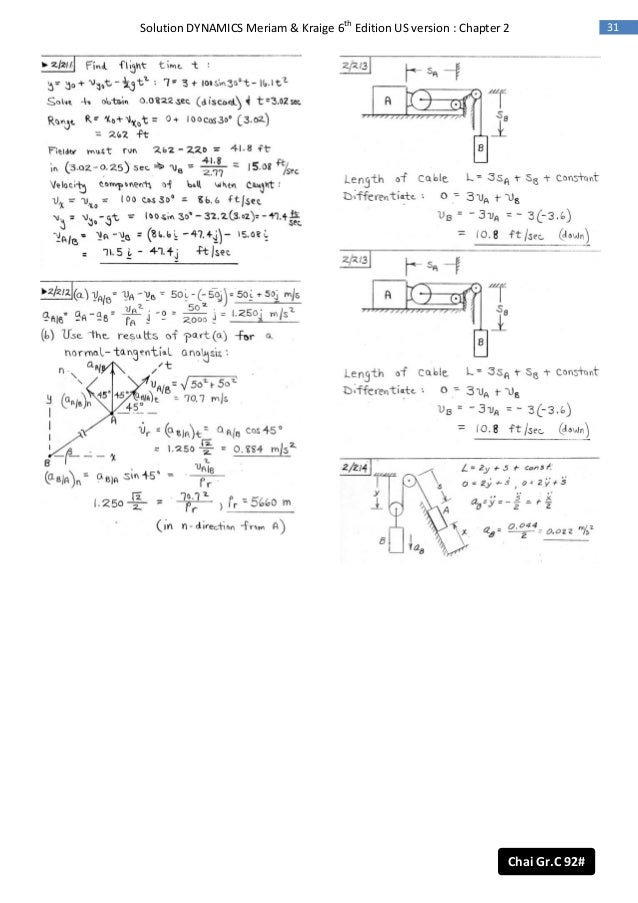 Solution DYNAMICS Meriam & Kraige 6th Edition US version : Chapter 2
31
►2/211 Find flight time t :
y = y₀ + v_y₀t - ½gt² : 7 = 3 + 100 sin 30° t - 16.1t²
Solve to obtain 0.0822 sec (discard) & t = 3.02 sec
Range R = x₀ + v_x₀t = 0 + 100 cos 30° (3.02)
= 262 ft
Fielder must run 262 - 220 = 41.8 ft
in (3.02 - 0.25) sec ⇒ v_B = 41.8/2.77 = 15.08 ft/sec
Velocity components of ball when caught :
v_x = v_x₀ = 100 cos 30° = 86.6 ft/sec
v_y = v_y₀ - gt = 100 sin 30° - 32.2(3.02) = -47.4 ft/sec
v_A/B = v_A - v_B = (86.6i - 47.4j) - 15.08i
= 71.5i - 47.4j ft/sec
►2/212 (a) v_A/B = v_A - v_B = 50i - (-50j) = 50i + 50j m/s
a_A/B = a_A - a_B = v_A²/ρ_A j - 0 = 50²/2000 j = 1.250j m/s²
(b) Use the results of part (a) for a
normal-tangential analysis :
n
a_A/B
t
y
(a_A/B)n
45°
45°
(a_A/B)t
v_A/B = √50² + 50²
= 70.7 m/s
45°
A
r
B
β
x
v̇_r = (a_B/A)t = a_A/B cos 45°
= 1.250 √2/2 = 0.884 m/s²
(a_B/A)n = a_B/A sin 45° = v_A/B²/ρ_r
1.250 √2/2 = 70.7²/ρ_r , ρ_r = 5660 m
(in n-direction from A)
2/213
S_A
A
S_B
B
Length of cable L = 3S_A + S_B + constant
Differentiate : 0 = 3v_A + v_B
v_B = -3v_A = -3(-3.6)
= 10.8 ft/sec (down)
2/213
S_A
A
S_B
B
Length of cable L = 3S_A + S_B + constant
Differentiate : 0 = 3v_A + v_B
v_B = -3v_A = -3(-3.6)
= 10.8 ft/sec (down)
2/214
y
s
A
x
B
a_B
L = 2y + s + const.
0 = 2ẏ + ṡ , 0 = 2ÿ + s̈
a_B = ÿ = -s̈/2 = +ẍ/2
a_B = 0.044/2 = 0.022 m/s²
Chai Gr.C 92#